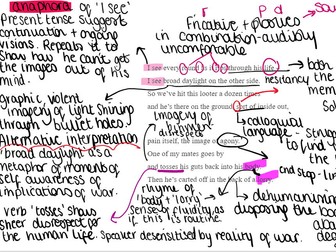 anaphora of 'I see'
Present tense suggests
continuation + ongoing
visions. Repeats it to
show how he can't get
the images out of his
mind.
Graphic violent
imagery of light shining
through bullet holes.
Alternative interpretation
'broad daylight' as a
metaphor of moments of
self awareness of
implications of war.
verb 'tosses' shows
sheer disrespect for
the human life.
Fricative + plosives
in combination - audibly
uncomfortable
I see every round as it rips through his life -
I see broad daylight on the other side.
So we've hit this looter a dozen times
and he's there on the ground, sort of inside out,
imagery of
pain itself, the image of agony.
One of my mates goes by
and tosses his guts back into his body.
Then he's carted off in the back of a lorry.
rhyme of
'body' + 'lorry'
sense of fluidity, as if
this is routine.
Speaker desensitised by reality of war.
both
hesitancy
colloquial
language - sense
to find
of the
and stop-
dehumanising
disposing the
also